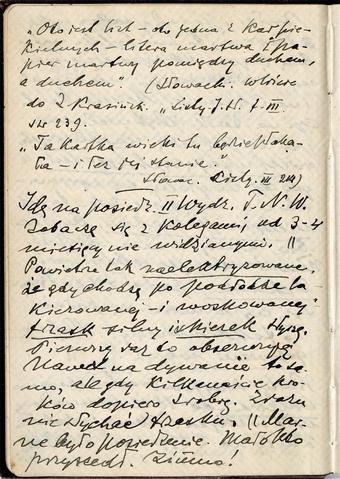 „Oto jest list – oto jedna z kart pie-
kielnych – litera martwa i pa-
pier martwy pomiędzy duchem,
a duchem". (Słowacki w liście
do Z. Krasińsk. „Listy J. S. t. III
str 239.
„Ta kartka wieki tu będzie płaka-
ła – i łez jej stanie."
Słowac. Listy. III 214)
Idę na posiedz. II Wydz. T. N. W.
Zobaczę się z kolegami, od 3–4
miesięcy nie widzianymi. ||
Powietrze tak naelektryzowane,
że gdy chodzę po podłodze la-
kierowanej – i woskowanej
trzask silny iskierek słyszę.
Pierwszy raz to obserwuję.
Nawet na dywanie to sa-
mo, ale gdy kilkanaście kro-
ków dopiero zrobię. Zrazu
nie słychać trzasku. || Mar-
ne było posiedzenie. Mało kto
przyszedł. Zimno!